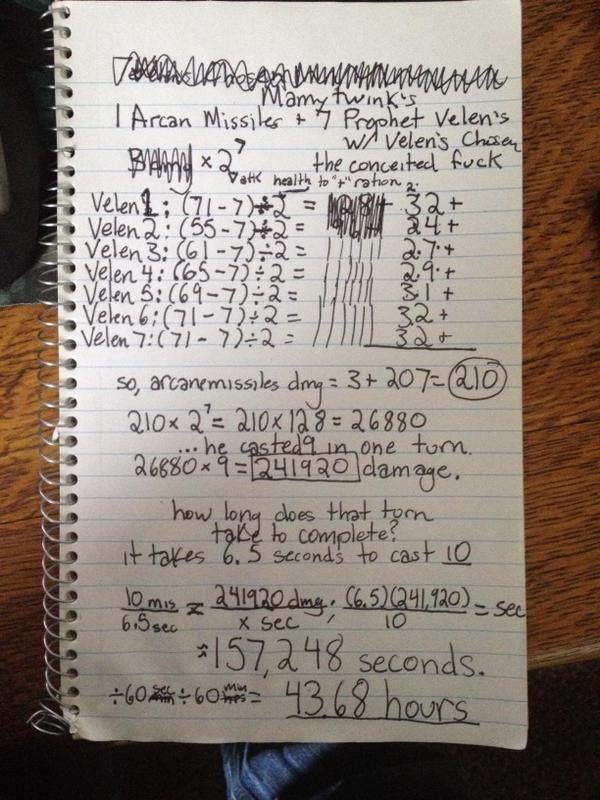 Mamytwink's
1 Arcan Missiles + 7 Prophet Velen's
w/ Velen's Chosen
× 2⁷ the conceited fuck
att health to "+" ration
Velen 1: (71-7)÷2 = 32+
Velen 2: (55-7)÷2 = 24+
Velen 3: (61-7)÷2 = 27+
Velen 4: (65-7)÷2 = 29+
Velen 5: (69-7)÷2 = 31+
Velen 6: (71-7)÷2 = 32+
Velen 7: (71-7)÷2 = 32+
so, arcanemissiles dmg = 3+207= 210
210×2⁷ = 210×128 = 26880
...he casted 9 in one turn.
26880×9 = 241920 damage.
how long does that turn
take to complete?
it takes 6.5 seconds to cast 10
10 mis / 6.5 sec = 241920 dmg / x sec ; (6.5)(241,920) / 10 = sec
≈157,248 seconds.
÷60 sec/min ÷60 min/hrs = 43.68 hours